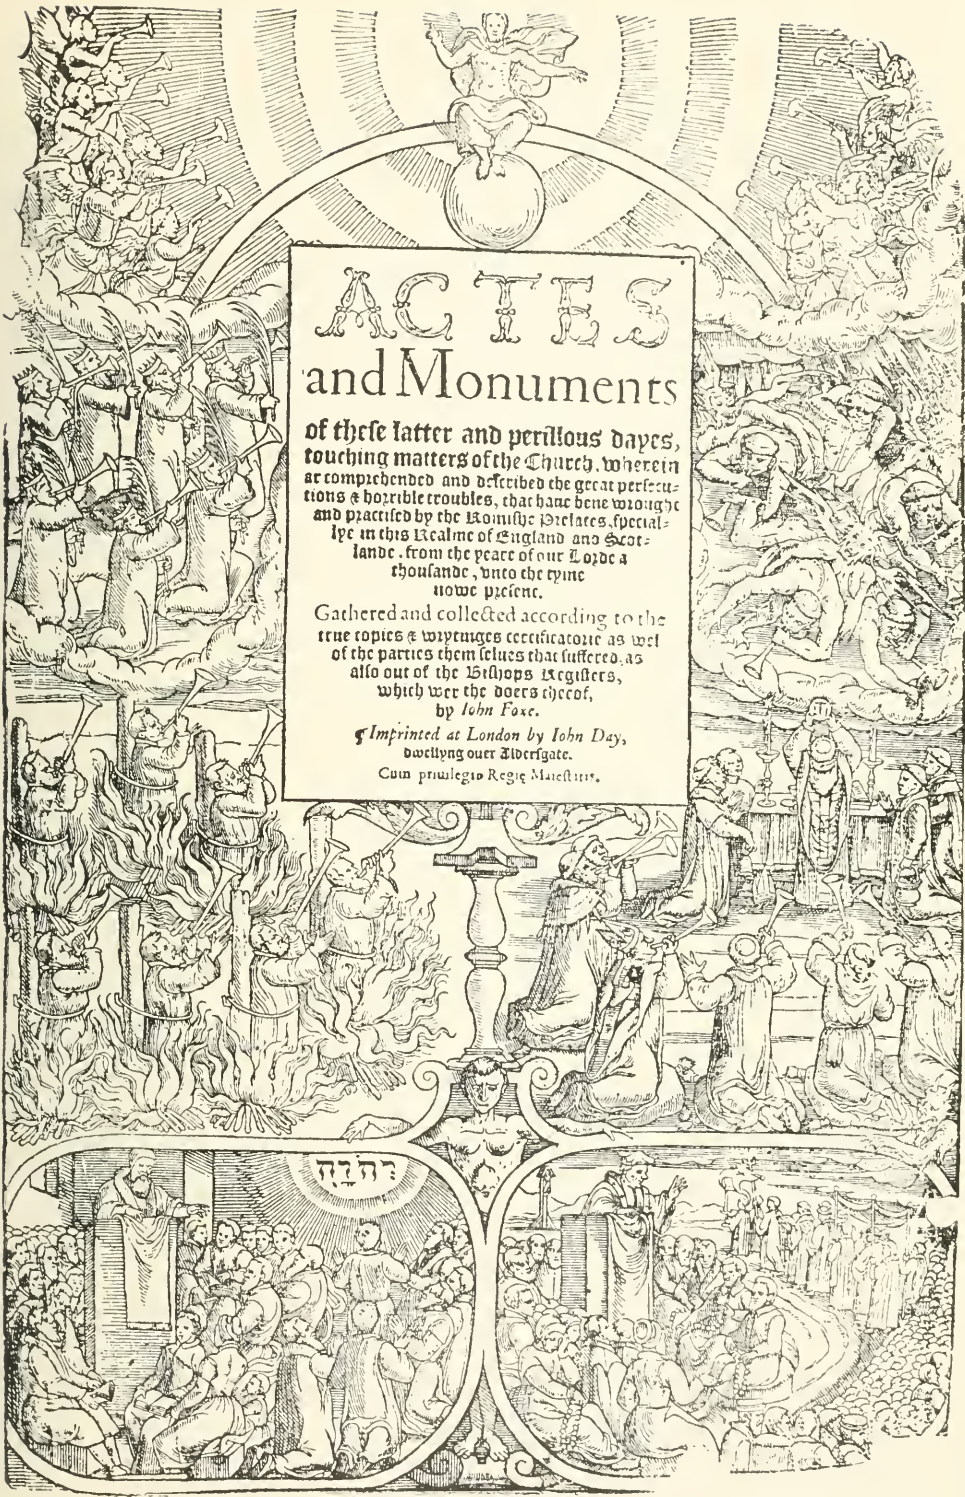 ACTES
and Monuments
of these latter and perillous dayes,
touching matters of the Church, wherein
ar comprehended and described the great persecu-
tions & horrible troubles, that haue bene wrought
and practised by the Romishe Prelates, special-
lye in this Realme of England and Scot-
lande, from the yeare of our Lorde a
thousande, vnto the tyme
nowe present.
Gathered and collected according to the
true copies & wrytinges certificatorie as wel
of the parties them selues that suffered, as
also out of the Bishops Registers,
which wer the doers therof,
by Iohn Foxe.
¶Imprinted at London by Iohn Day,
dwellyng ouer Aldersgate.
Cum priuilegio Regię Maiestatis.
יְהֹוָה